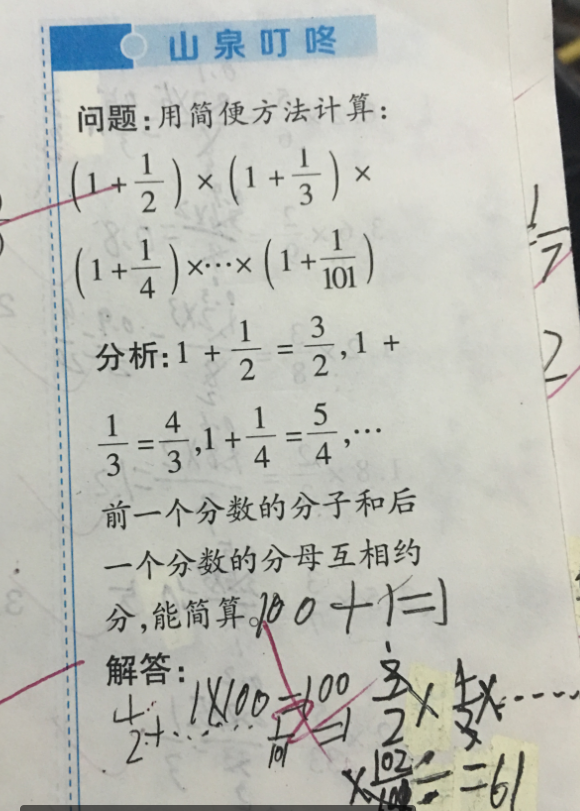 山泉叮咚
问题:用简便方法计算:
(1+1/2)×(1+1/3)×
(1+1/4)×…×(1+1/101)
分析:1+1/2=3/2,1+
1/3=4/3,1+1/4=5/4,…
前一个分数的分子和后
一个分数的分母互相约
分,能简算。
100+1=1
解答:
1×100=100
1/101=1
3/2×4/3×……
×102/
=61
1/7
2